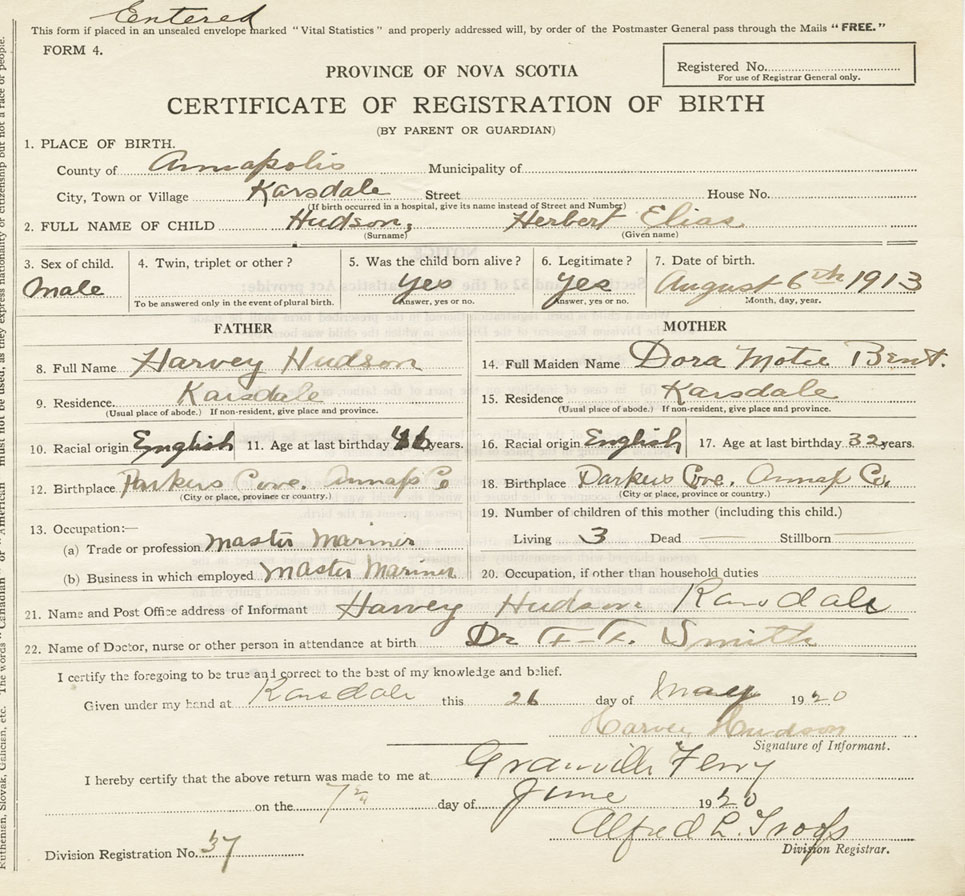 Entered
This form if placed in an unsealed envelope marked "Vital Statistics" and properly addressed will, by order of the Postmaster General pass through the Mails "FREE."
FORM 4.
Registered No.
For use of Registrar General only.
PROVINCE OF NOVA SCOTIA
CERTIFICATE OF REGISTRATION OF BIRTH
(BY PARENT OR GUARDIAN)
1. PLACE OF BIRTH.
County of Annapolis Municipality of
City, Town or Village Karsdale Street House No.
(If birth occurred in a hospital, give its name instead of Street and Number)
2. FULL NAME OF CHILD Hudson, Herbert Elias
(Surname) (Given name)
3. Sex of child. 4. Twin, triplet or other? 5. Was the child born alive? 6. Legitimate? 7. Date of birth.
Male Yes Yes August 6th 1913
To be answered only in the event of plural birth. Answer, yes or no. Answer, yes or no. Month, day, year.
FATHER MOTHER
8. Full Name Harvey Hudson 14. Full Maiden Name Dora Motie Brent.
9. Residence. Karsdale 15. Residence Karsdale
(Usual place of abode.) If non-resident, give place and province. (Usual place of abode.) If non-resident, give place and province.
10. Racial origin English 11. Age at last birthday years. 16. Racial origin English 17. Age at last birthday 32 years.
12. Birthplace Parkers Cove. Annap Co 18. Birthplace Parkers Cove. Annap Co.
(City or place, province or country.) (City or place, province or country.)
13. Occupation:— 19. Number of children of this mother (including this child.)
(a) Trade or profession Master Mariner Living 3 Dead — Stillborn —
(b) Business in which employed Master Mariner 20. Occupation, if other than household duties
21. Name and Post Office address of Informant Harvey Hudson Karsdale
22. Name of Doctor, nurse or other person in attendance at birth Dr F. F. Smith
I certify the foregoing to be true and correct to the best of my knowledge and belief.
Given under my hand at Karsdale this 26 day of May 1920
Harvey Hudson
Signature of Informant.
I hereby certify that the above return was made to me at Granville Ferry
on the 7th day of June 1920
Alfred L.
Division Registrar.
Division Registration No. 37